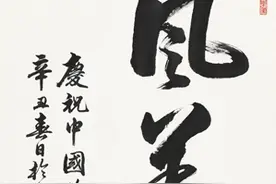 风
慶祝中國
辛丑春日於